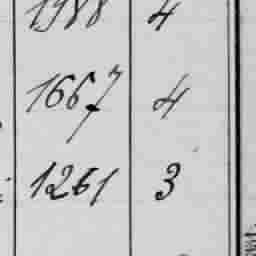 1988 4
1667 4
1261 3